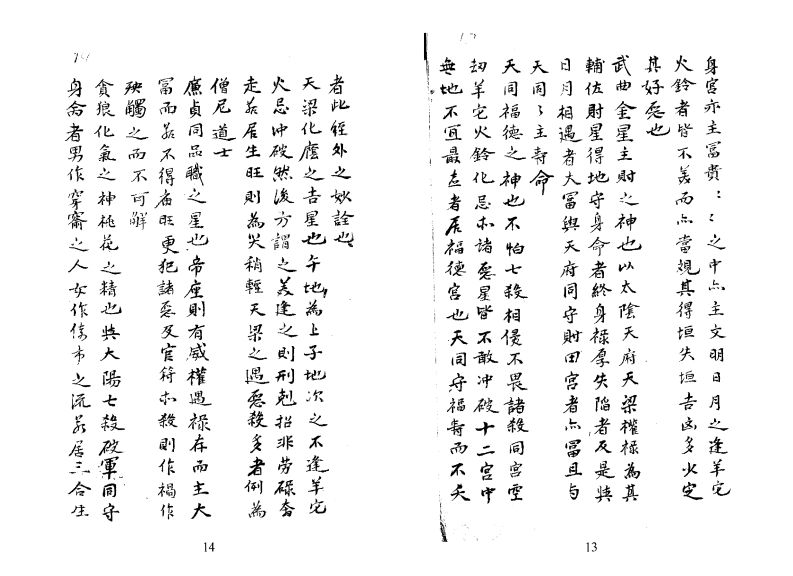 身宮亦主冨貴〻〻之中亦主文明日月之逢羊陀
火鈴者皆不美而亦當覌其得垣失垣吉凶多少定
其好惡也
武曲金星主財之神也以太陰天府天梁權禄為其
輔佐財星得地守身命者終身禄厚失陷者反是與
日月相遇者大冨與天府同守財田宮者亦冨且与
天同〻主寿命
天同福德之神也不怕七殺相侵不畏諸殺同宮空
劫羊陀火鈴化忌亦諸惡星皆不敢冲破十二宮中
無地不宜最立者居福德宮也天同守福寿而不夭
13
者此経外之妙詮也
天梁化廕之吉星也午地為上子地次之不逢羊陀
火忌冲破然後方謂之美逢之則刑剋招非劳碌奔
走若居生旺則為灾稍輕天梁之遇惡殺多者例為
僧尼道士
廉貞同品職之星也帝座則有威權遇禄存而主大
冨而若不得庙旺更犯諸惡及官符亦殺則作禍作
殃觸之而不可解
貪狼化氣之神桃花之精也與大陽七殺破軍同守
身命者男作穿窬之人女作倚市之流若居三合生
14